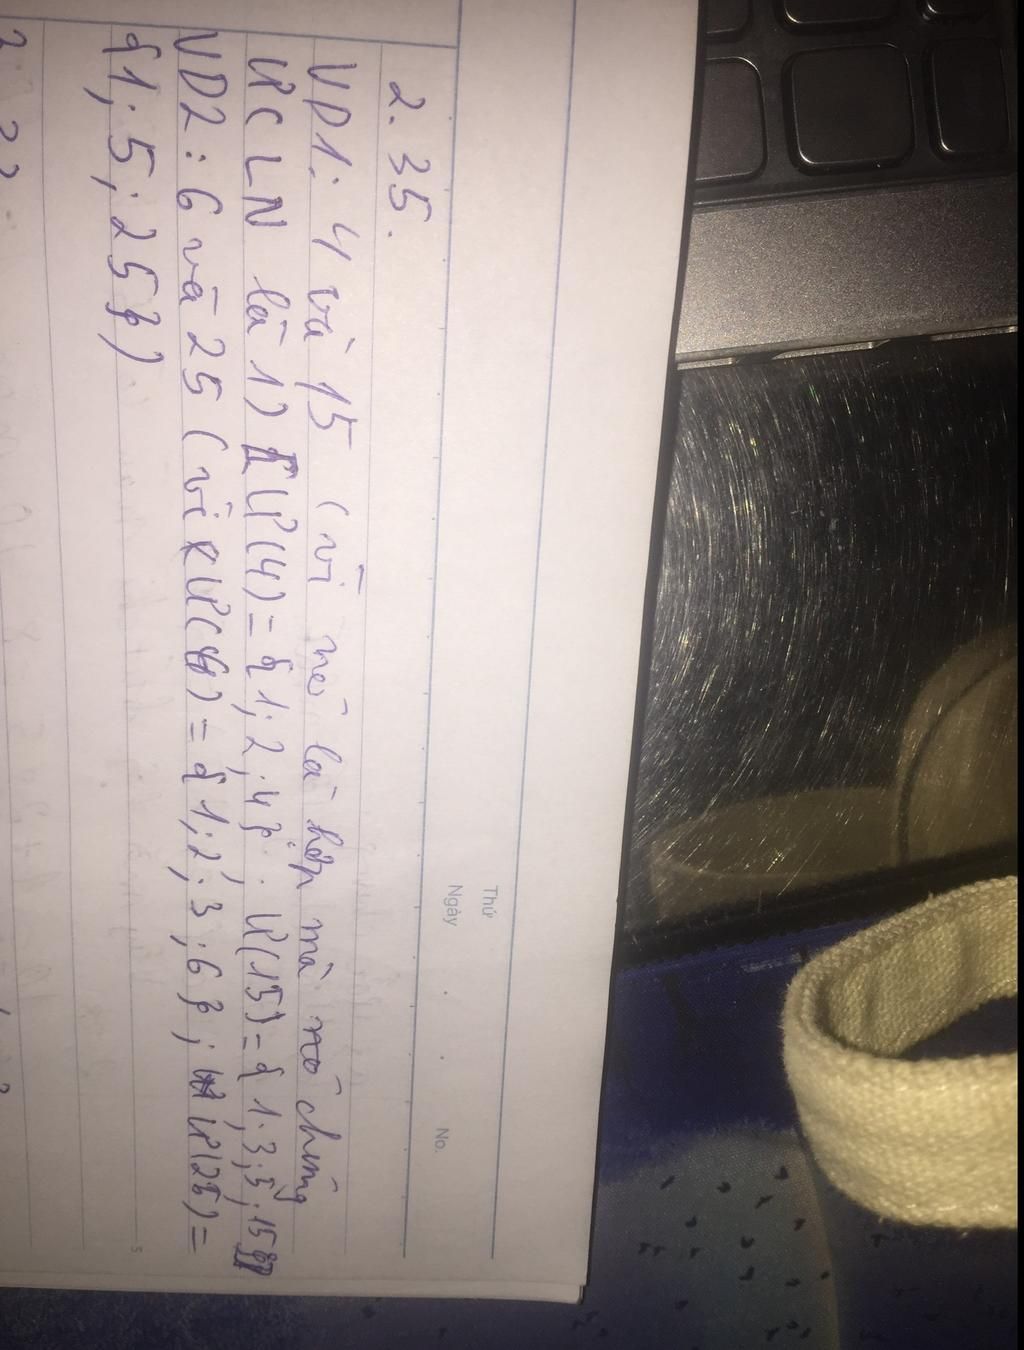 Thứ
Ngày
No.
2.35.
VD1: 4 và 15 (vì nó là hợp mà nó chúng
ƯCLN là 1) Ư(4)={1;2;4}; Ư(15)={1;3;5;15}
VD2: 6 và 25 (vì Ư(6)={1;2;3;6}; Ư(25)=
{1;5;25})